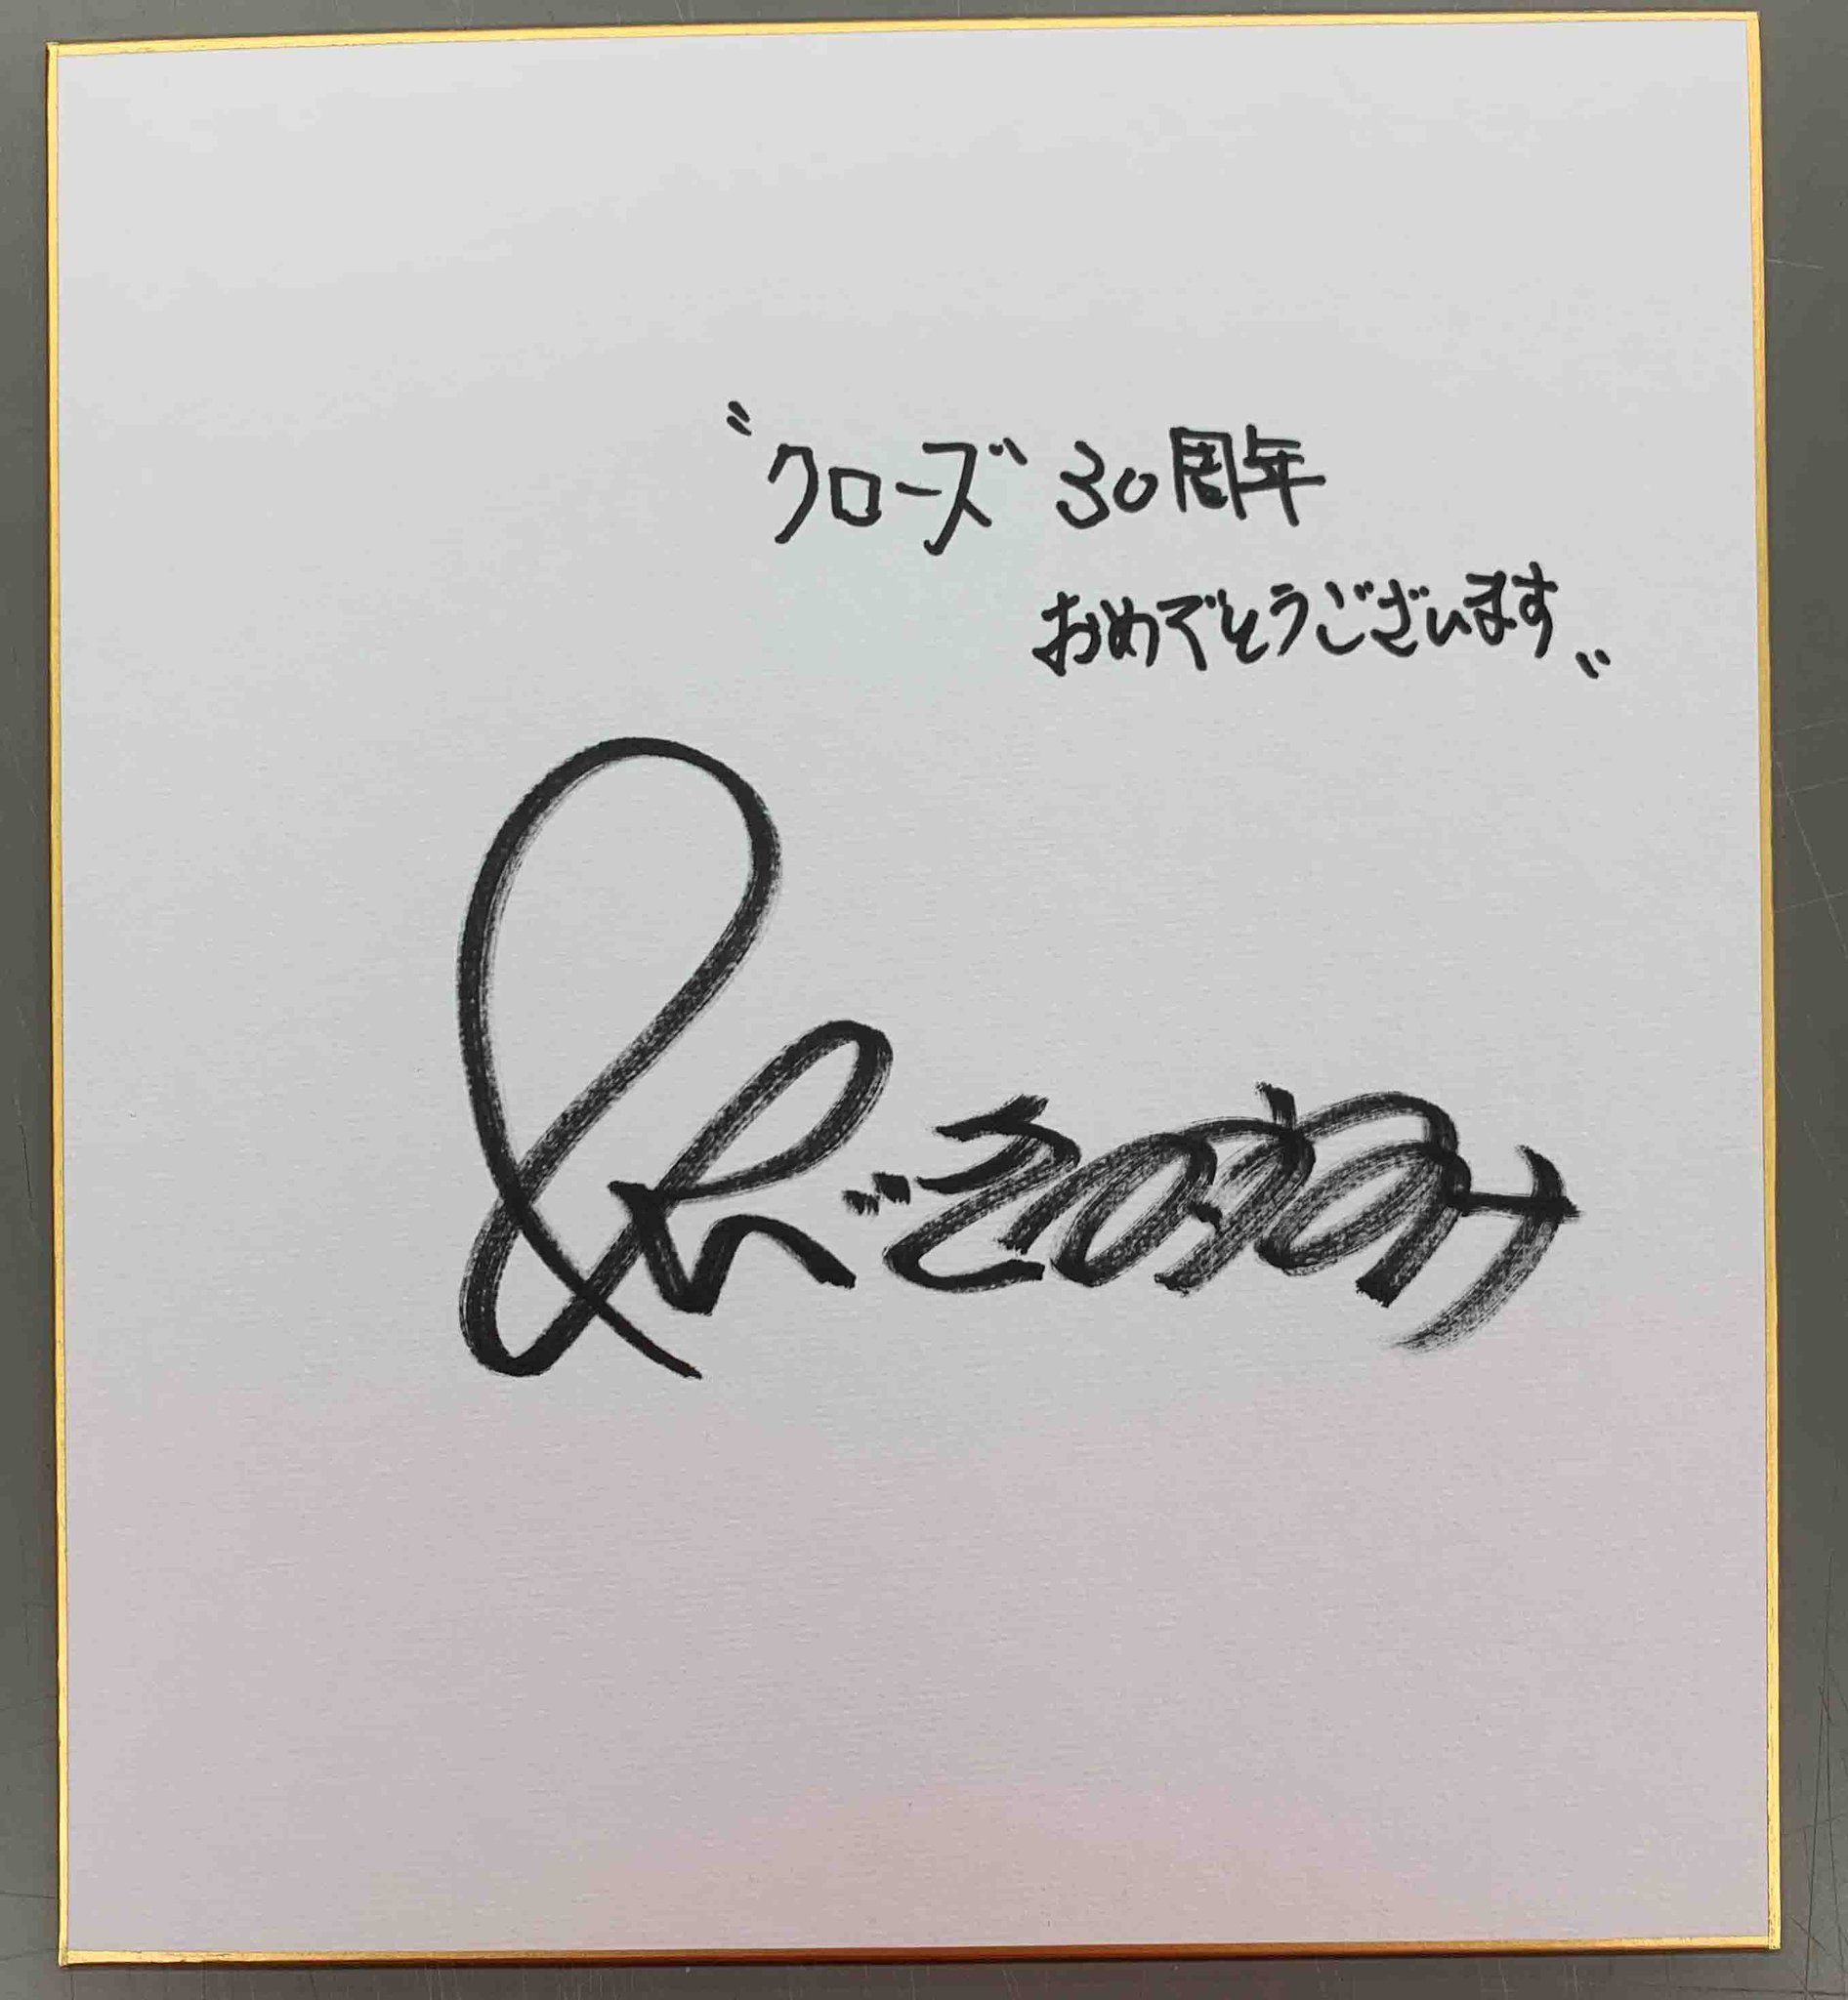 〝クローズ〟30周年
おめでとうございます〟